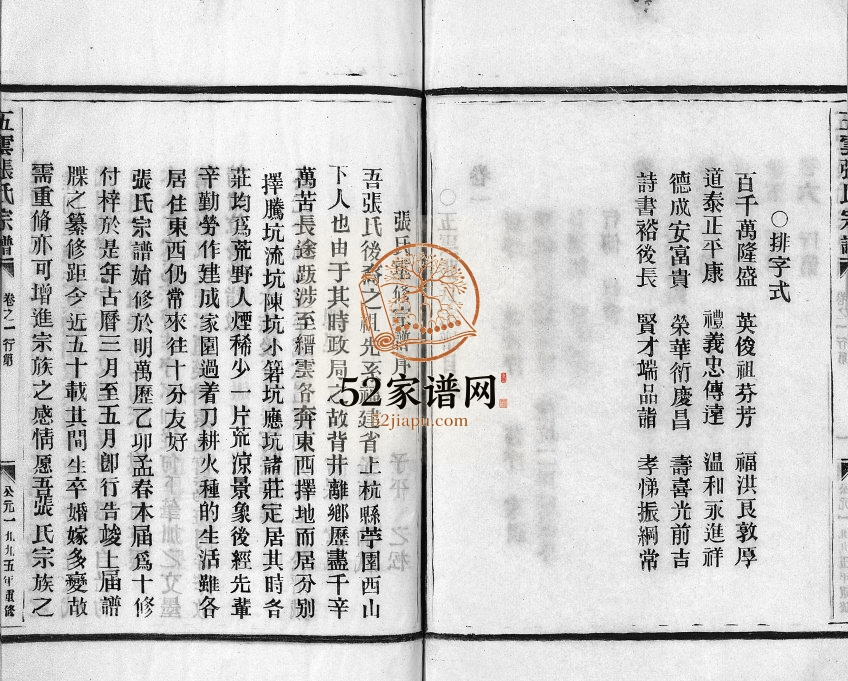 ○排字式
百千萬隆盛 英俊祖芬芳 福洪良敦厚
道泰正平康 禮義忠傳達 溫和永進祥
德成安富貴 榮華衍慶昌 壽喜光前吉
詩書裕後長 賢才端品諧 孝悌振綱常
張氏 修宗譜序
吾張氏後裔之祖先系福建省上杭縣苧園西山
下人也由于其時政局之故背井離鄉歷盡千辛
萬苦長途跋涉至縉雲各奔東西擇地而居分別
擇騰坑流坑陳坑小箬坑應坑諸莊定居其時各
莊均爲荒野人煙稀少一片荒凉景象後經先輩
辛勤勞作建成家園過着刀耕火種的生活雖各
居住東西仍常來往十分友好
張氏宗譜始修於明萬歷乙卯孟春本届爲十修
付梓於是年古曆三月至五月卽行告竣上届譜
牒之纂修距今近五十載其間生卒婚嫁多變故
需重脩亦可增進宗族之感情愿吾張氏宗族之
五雲張氏宗譜
卷之一行第
公元一九九五年重修
52家谱网
52jiapu.com